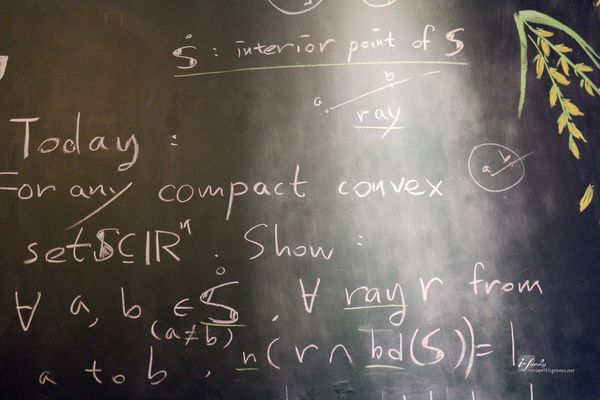 S̊ : interior point of S
a b
ray
Today :
a b
For any compact convex
set S⊆ℝⁿ . Show :
∀ a, b ∈ S̊ , ∀ ray r from
(a≠b)
a to b , n(r ∩ bd(S)) = 1